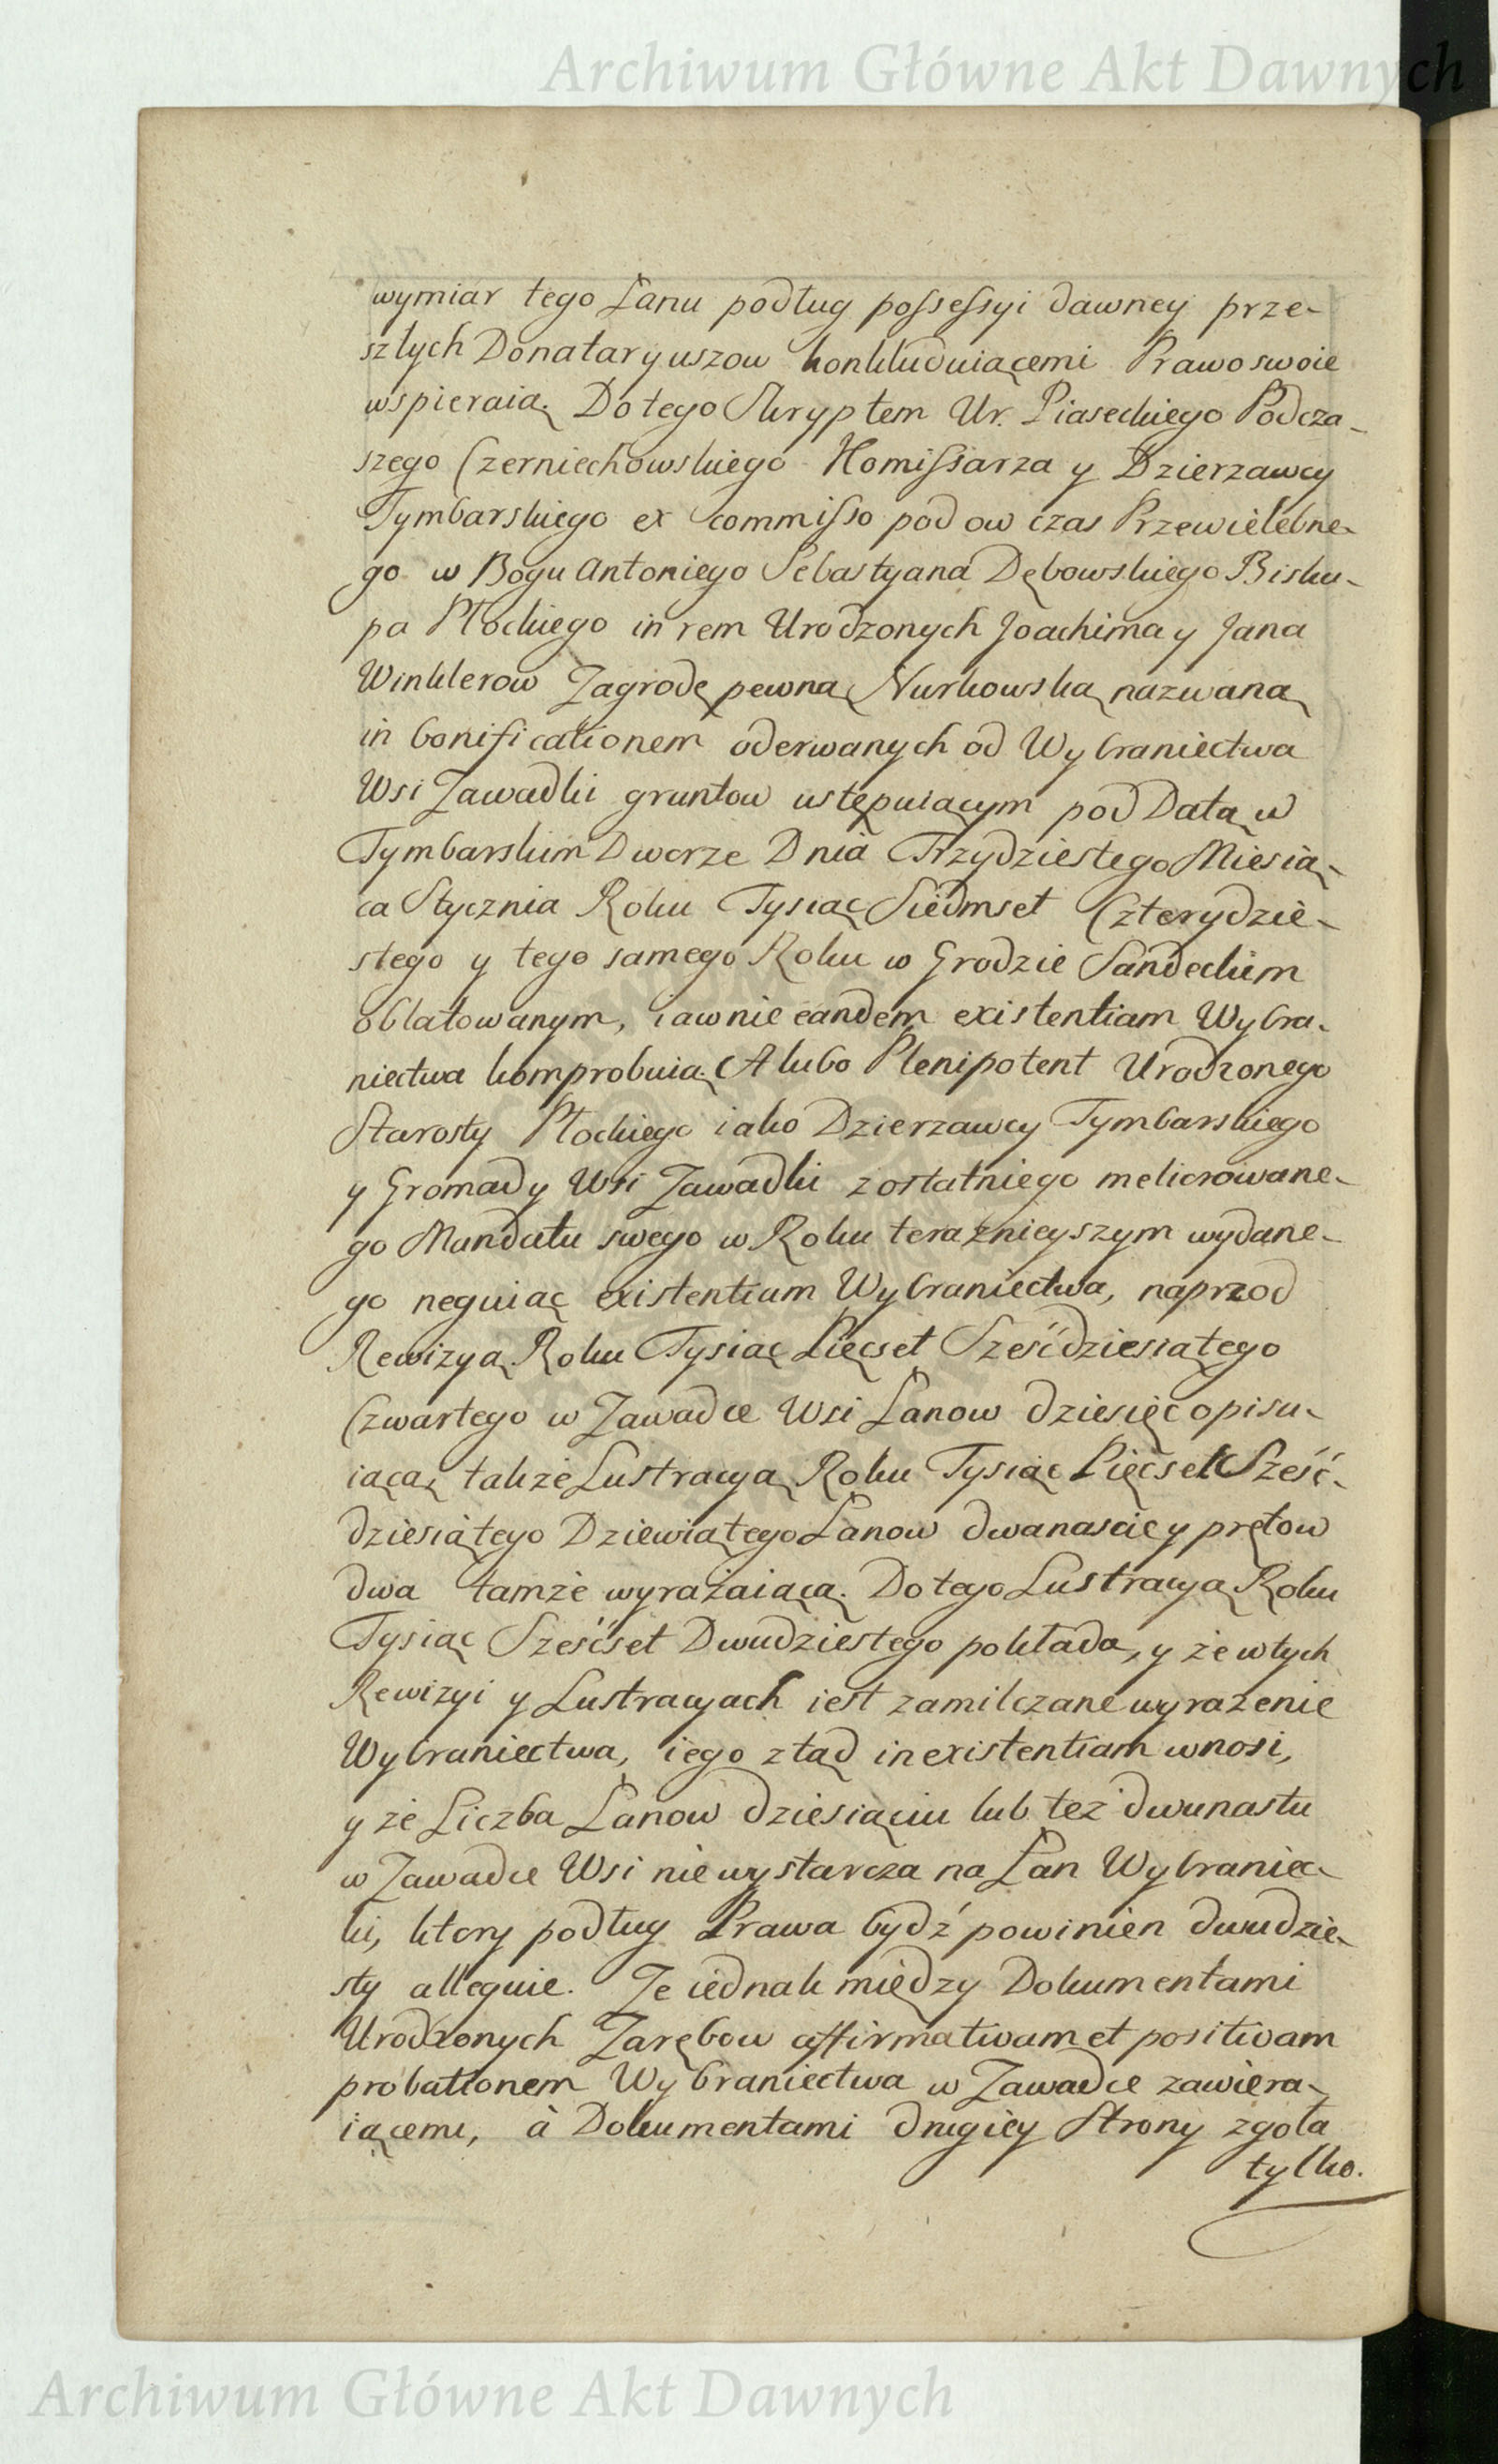 Archiwum Główne Akt Dawnych
wymiar tego Łanu podług possessyi dawney prze-
szłych Donataryuszow konkluduiącemi Prawo swoie
wspieraią. Do tego Skryptem Ur. Piaseckiego Podcza-
szego Czerniechowskiego Komissarza y Dzierzawcy
Tymbarskiego ex commisso pod ow czas Przewielebne-
go w Bogu Antoniego Sebastyana Dębowskiego Bisku-
pa Płockiego in rem Urodzonych Joachima y Jana
Winklerow Zagrodę pewną Nurkowską nazwaną
in bonificationem oderwanych od Wybraniectwa
Wsi Zawadki gruntow ustępuiącym pod Datą w
Tymbarskim Dworze Dnia Trzydziestego Miesią-
ca Stycznia Roku Tysiąc Siedmset Czterydzie-
stego y tego samego Roku w Grodzie Sandeckim
oblatowanym, iawnie eandem existentiam Wybra-
niectwa komprobuią. A lubo Plenipotent Urodzonego
Starosty Płockiego iako Dzierzawcy Tymbarskiego
y Gromady Wsi Zawadki z ostatniego meliorowane-
go Mandatu swego w Roku teraznieyszym wydane-
go neguiąc existentiam Wybraniectwa, naprzod
Rewizyą Roku Tysiąc Pięcset Sześćdziesiątego
Czwartego w Zawadce Wsi Łanow dziesięć opisu-
iącą, także Lustracyą Roku Tysiąc Pięcset Sześć-
dziesiątego Dziewiątego Łanow dwanascie y prętow
dwa tamże wyrażaiącą. Do tego Lustracyą Roku
Tysiąc Sześcset Dwudziestego pokłada, y że w tych
Rewizyi y Lustracyach iest zamilczane wyrażenie
Wybraniectwa, iego ztąd inexistentiam wnosi,
y że Liczba Łanow dziesiąciu lub też dwunastu
w Zawadce Wsi niewystarcza na Łan Wybraniec-
ki, ktory podług Prawa bydź powinien dwudzie-
sty alleguie. Że iednak między Dokumentami
Urodzonych Zarębow affirmativam et positivam
probationem Wybraniectwa w Zawadce zawiera-
iącemi, à Dokumentami drugiey Strony zgoła
tylko.
Archiwum Główne Akt Dawnych